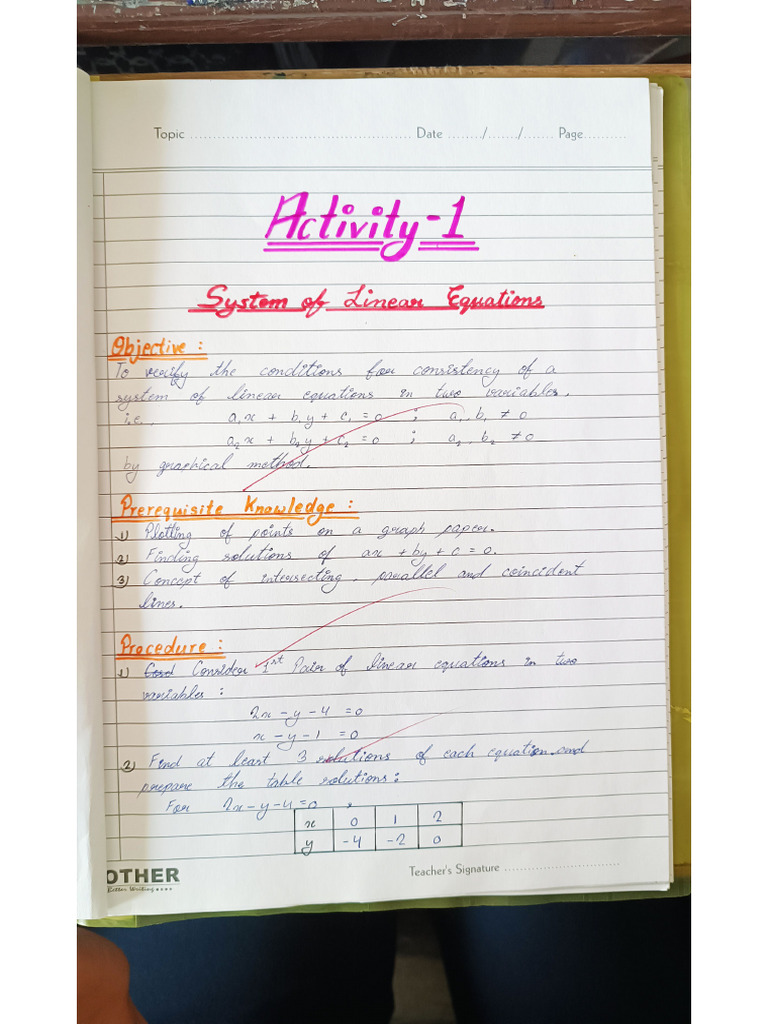 Topic ................................................ Date ......../......./....... Page..........
Activity-1
System of Linear Equations
Objective :
To verify the conditions for consistency of a
system of linear equations in two variables.
i.e., a₁x + b₁y + c₁ = 0 ; a₁, b₁ ≠ 0
a₂x + b₂y + c₂ = 0 ; a₂, b₂ ≠ 0
by graphical method.
Prerequisite Knowledge :
1) Plotting of points on a graph paper.
2) Finding solutions of ax + by + c = 0.
3) Concept of intersecting, parallel and coincident
lines.
Procedure :
1) Consider 1st Pair of linear equations in two
variables :
2x - y - 4 = 0
x - y - 1 = 0
2) Find at least 3 solutions of each equation and
prepare the table solutions :
For 2x - y - 4 = 0 ,
x 0 1 2
y -4 -2 0
OTHER
Better Writing....
Teacher's Signature ..............................